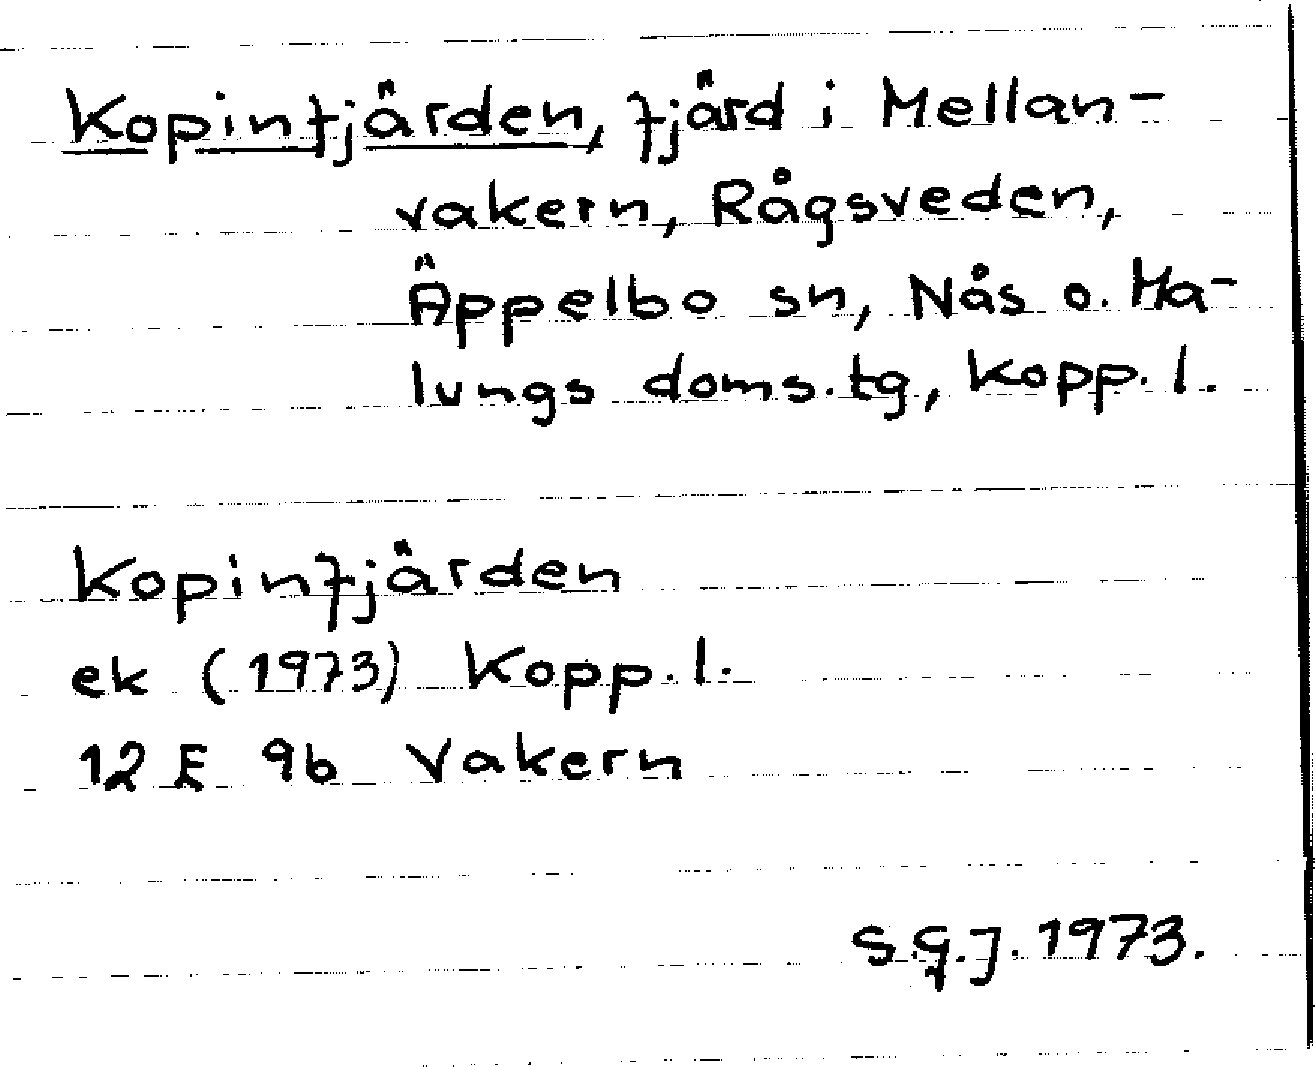 Kopinfjärden, fjärd i Mellan-
vakern, Rågsveden,
Äppelbo sn, Nås o. Ma-
lungs doms.tg, Kopp.l.
Kopinfjärden
ek (1973) Kopp.l.
12 E 9b Vakern
S.G.J. 1973.